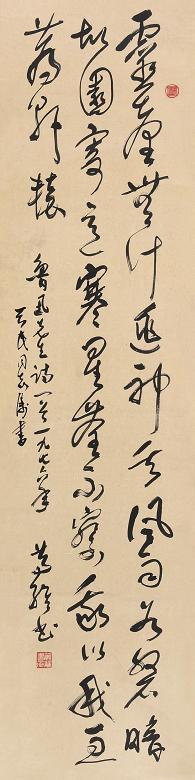 靈臺無计逃神矢風雨如磐暗
故園寄意寒星荃不察我以我血
薦軒轅
魯迅先生詩一首一九七六年
同志属書